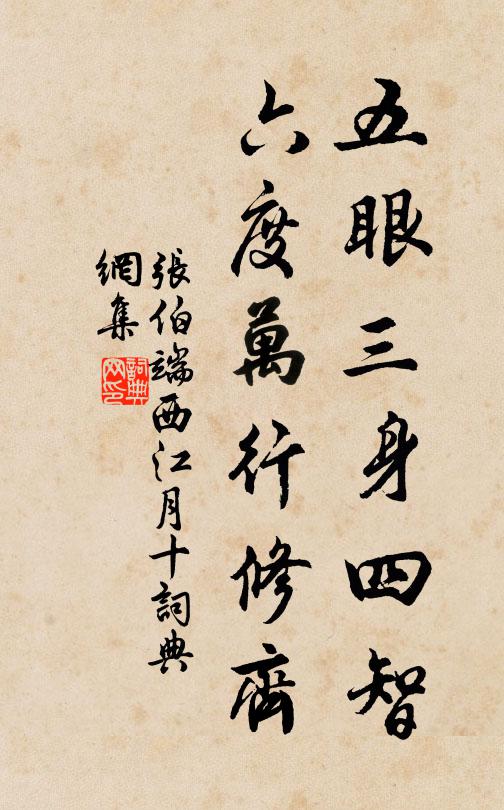 五眼三身四智
六度萬行修齊
張伯端西江月十詞典
網集
詞典
网印